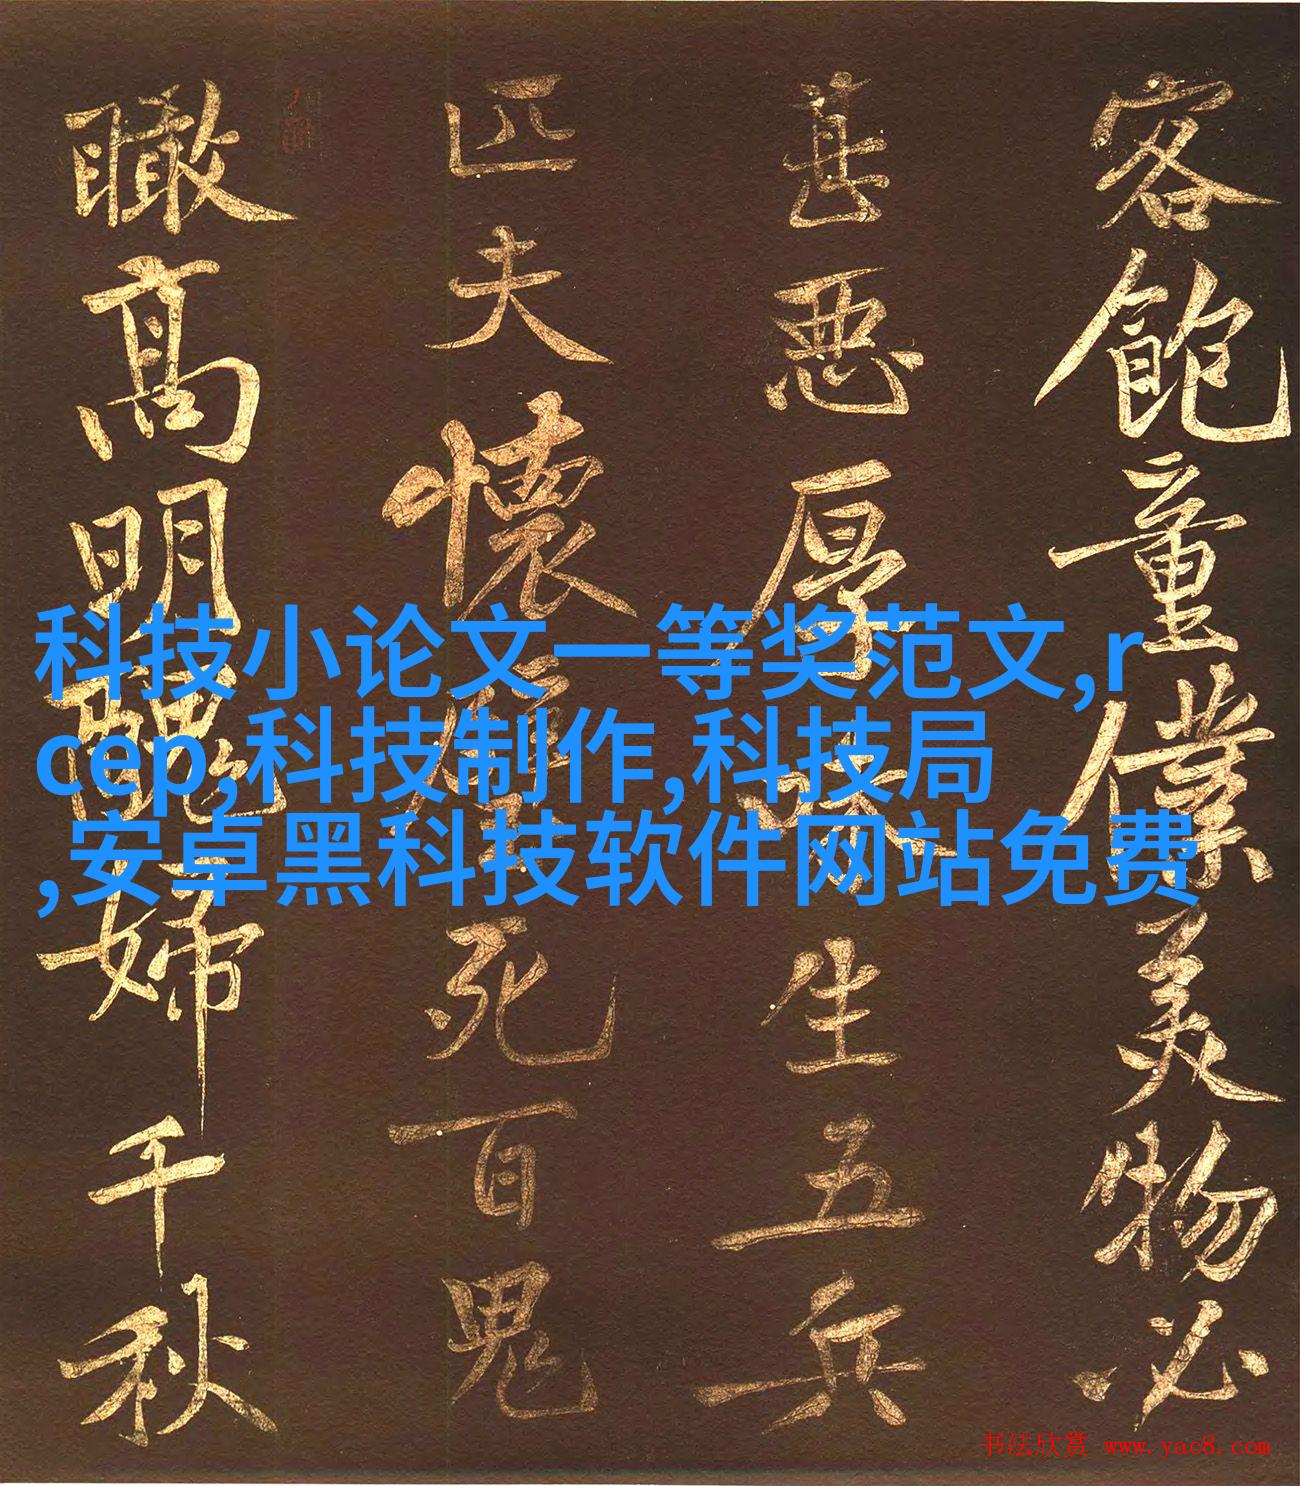 客飽童僕美物必
甚惡厚味生五兵
匹夫懷璧死百鬼
瞰高明醜婦千秋
科技小论文一等奖范文,r
cep,科技制作,科技局
,安卓黑科技软件网站免费
书法欣赏 www.yac8.com